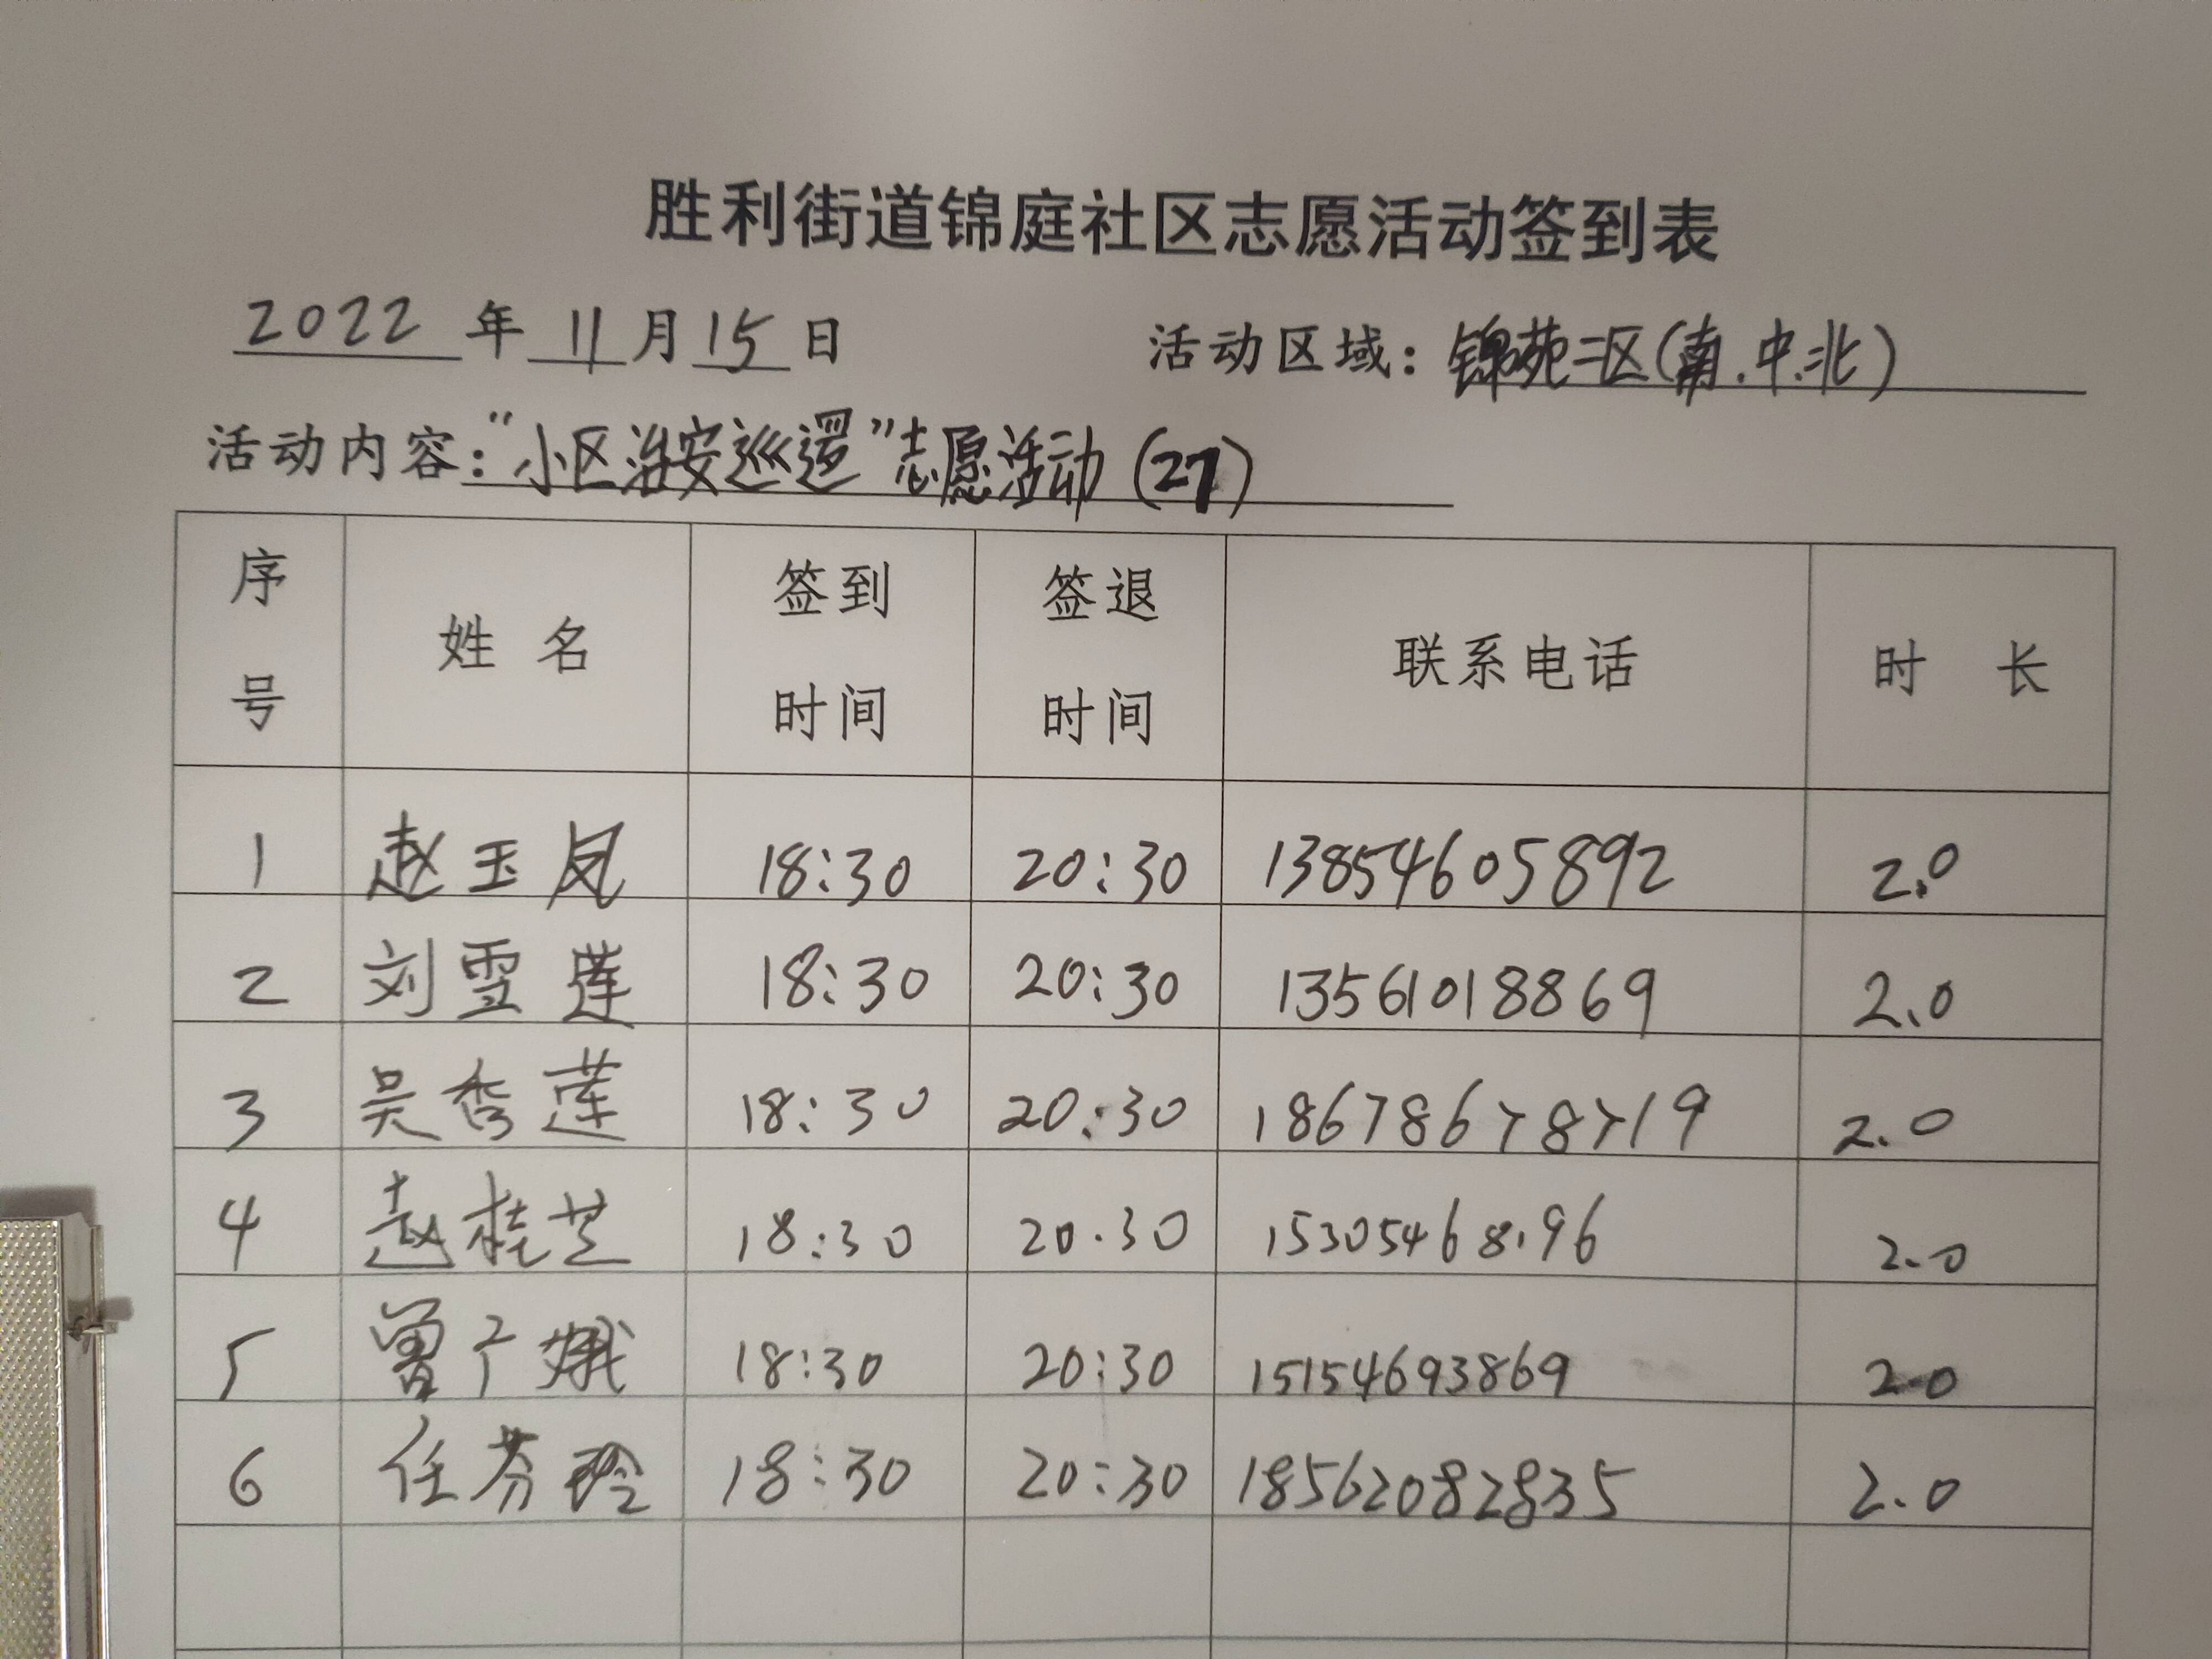 胜利街道锦庭社区志愿活动签到表
2022 年 11 月 15 日 活动区域：锦苑二区(南.中.北)
活动内容："小区治安巡逻"志愿活动(27)
序号 姓名 签到时间 签退时间 联系电话 时长
1 赵玉凤 18:30 20:30 13854605892 2.0
2 刘雪莲 18:30 20:30 13561018869 2.0
3 吴秀莲 18:30 20:30 18678678719 2.0
4 赵桂芝 18:30 20.30 15305468196 2.0
5 曾广娥 18:30 20:30 15154693869 2.0
6 任芬玲 18:30 20:30 18562082835 2.0